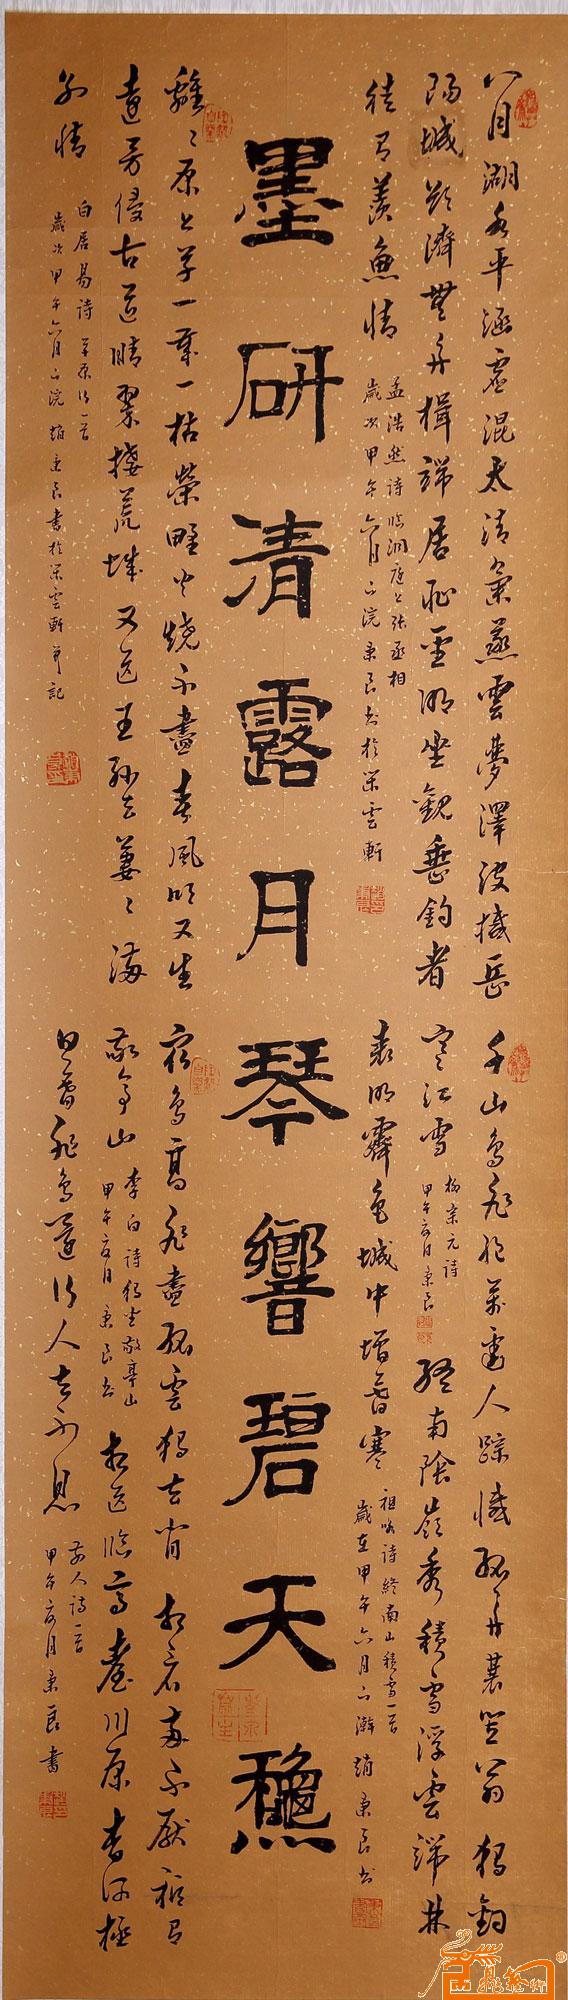 八月湖水平涵虛混太清氣蒸雲夢澤波撼岳
陽城欲濟無舟楫端居恥聖明坐觀垂釣者
徒有羨魚情
孟浩然詩臨洞庭上張丞相
歲次甲午六月上浣秉良書於雲軒
千山鳥飛絕萬逕人蹤滅孤舟蓑笠翁獨釣
寒江雪
柳宗元詩
甲午六月秉良
終南陰嶺秀積雪浮雲端林
表明霽色城中增暮寒
祖咏詩終南山積雪一首
歲在甲午六月下澣趙秉良書
墨研清露月琴響碧天穐
離々原上草一歲一枯榮野火燒不盡春風吹又生
遠芳侵古道晴翠接荒城又送王孫去萋々滿
別情
白居易詩草原行一首
歲次甲午六月上浣趙秉良書於雲軒並記
衆鳥高飛盡孤雲獨去閒相看兩不厭祗有
敬亭山
李白詩獨坐敬亭山
甲午六月秉良書
相送臨高臺川原杳何極
日暮飛鳥還行人去不息
前人詩一首
甲午六月秉良書